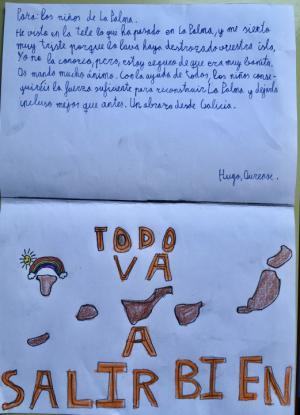 Para: los niños de La Palma.
He visto en la tele lo que ha pasado en La Palma, y me siento
muy triste porque la lava haya destrozado vuestra isla,
Yo no la conozco, pero, estoy seguro de que era muy bonita.
Os mando mucho ánimo. Con la ayuda de todos, los niños conse-
guiréis la fuerza suficiente para reconstruir La Palma y dejarla
incluso mejor que antes. Un abrazo desde Galicia.
Hugo, Ourense.
TODO
VA
A
SALIR BIEN